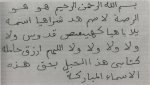 بسم الله الرحمن الرحيم هو هو
الرصة لا صم هد شراهيا اسمه
بلا هيا كهيعص قد وس ولا
ولا ولا ولا ولا اللهم ارزق حامله
كتابي هذا الحبل بحق هذه
الاسماء المباركة